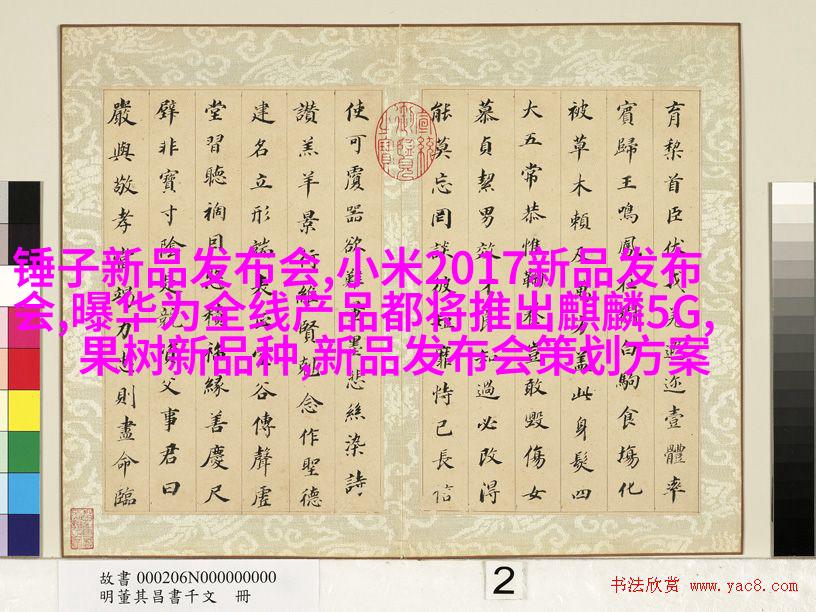 育黎首臣伏戎羌遐迩壹體率
賓歸王鳴鳳在白駒食場化
被草木賴及方蓋此身髮四
大五常恭惟鞠養豈敢毀傷女
慕貞絜男效良知過必改得
能莫忘罔談彼短靡恃己長信
使可覆器欲難量墨悲絲染詩
讚羔羊景行維賢剋念作聖德
建名立形端表正空谷傳聲虛
堂習聽禍因惡積福緣善慶尺
璧非寶寸陰是競資父事君曰
嚴與敬孝當竭力忠則盡命臨
锤子新品发布会,小米2017新品发布
会,曝华为全线产品都将推出麒麟5G,
果树新品种,新品发布会策划方案
故書 000206N000000000
明董其昌書千文 冊
2
书法欣赏 www.yac8.com